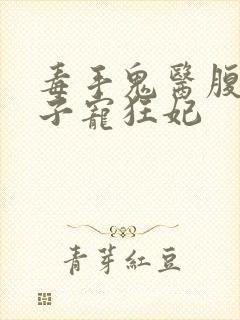 毒手鬼醫腹
子寵狂妃
青芽紅豆